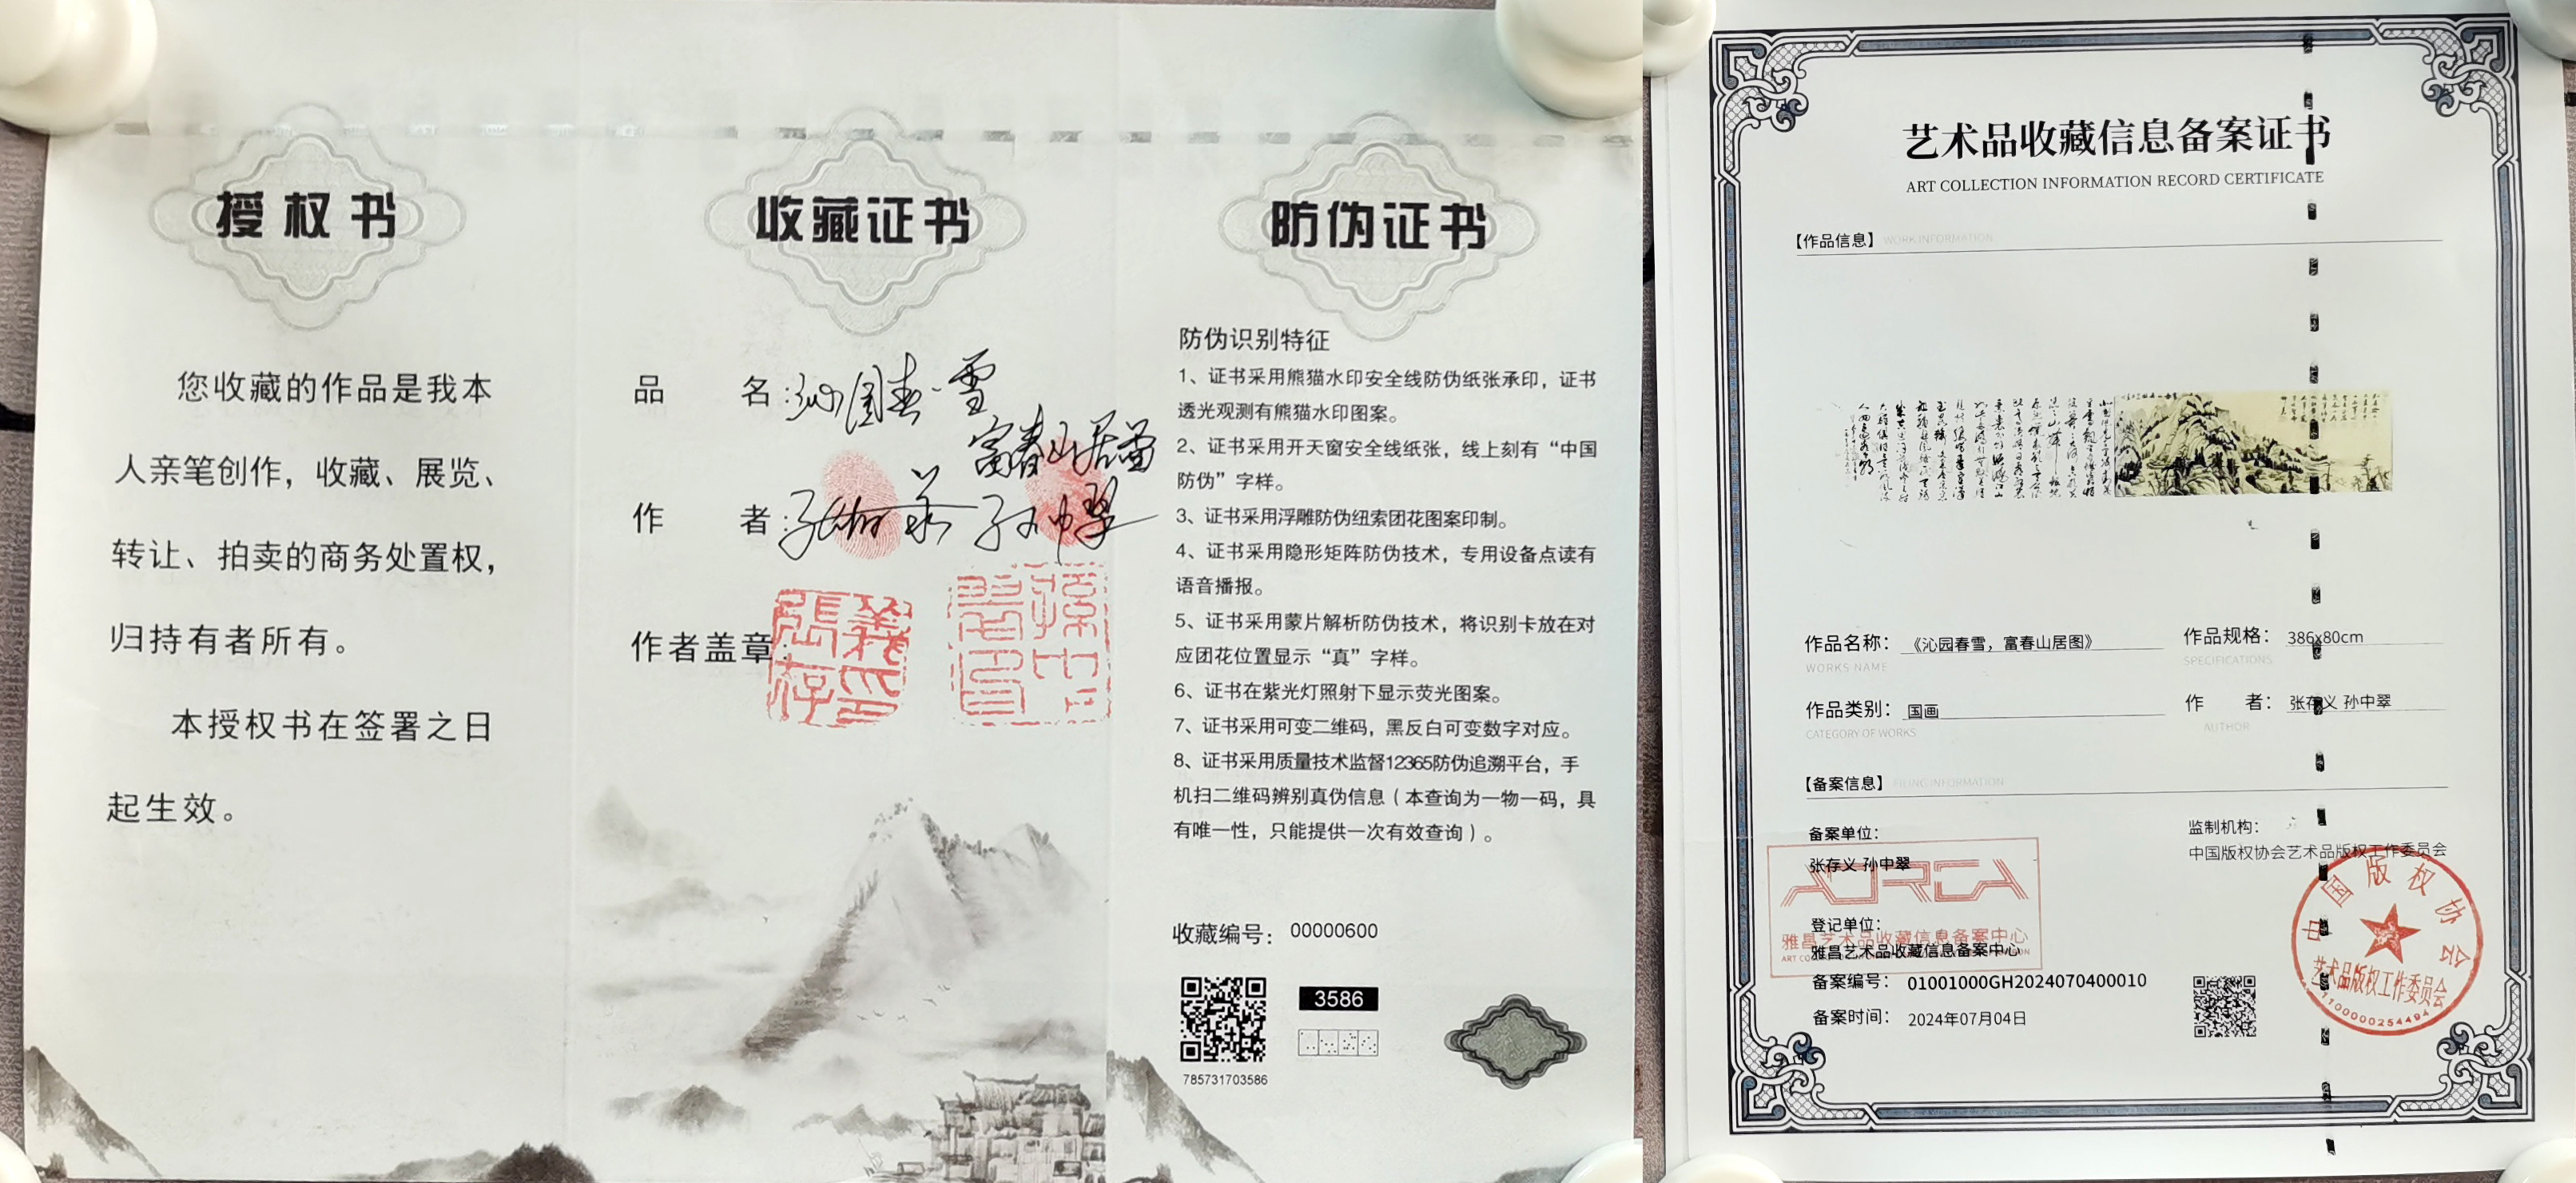 授权书
您收藏的作品是我本
人亲笔创作，收藏、展览、
转让、拍卖的商务处置权，
归持有者所有。
本授权书在签署之日
起生效。
收藏证书
品 名：沁园春·雪
富春山居图
作 者：张存义 孙中翠
作者盖章：
張存義印
孫中翠印
防伪证书
防伪识别特征
1、证书采用熊猫水印安全线防伪纸张承印，证书
透光观测有熊猫水印图案。
2、证书采用开天窗安全线纸张，线上刻有“中国
防伪”字样。
3、证书采用浮雕防伪纽索团花图案印制。
4、证书采用隐形矩阵防伪技术，专用设备点读有
语音播报。
5、证书采用蒙片解析防伪技术，将识别卡放在对
应团花位置显示“真”字样。
6、证书在紫光灯照射下显示荧光图案。
7、证书采用可变二维码，黑反白可变数字对应。
8、证书采用质量技术监督12365防伪追溯平台，手
机扫二维码辨别真伪信息（本查询为一物一码，具
有唯一性，只能提供一次有效查询）。
收藏编号：00000600
3586
785731703586
艺术品收藏信息备案证书
ART COLLECTION INFORMATION RECORD CERTIFICATE
【作品信息】 WORK INFORMATION
作品名称：《沁园春雪，富春山居图》
WORKS NAME
作品规格：386x80cm
SPECIFICATIONS
作品类别：国画
CATEGORY OF WORKS
作 者：张存义 孙中翠
AUTHOR
【备案信息】 FILING INFORMATION
备案单位：
张存义 孙中翠
监制机构：
中国版权协会艺术品版权工作委员会
登记单位：
雅昌艺术品收藏信息备案中心
雅昌艺术品收藏信息备案中心
备案编号：01001000GH2024070400010
备案时间：2024年07月04日
中国版权协会
艺术品版权工作委员会
1100000254494